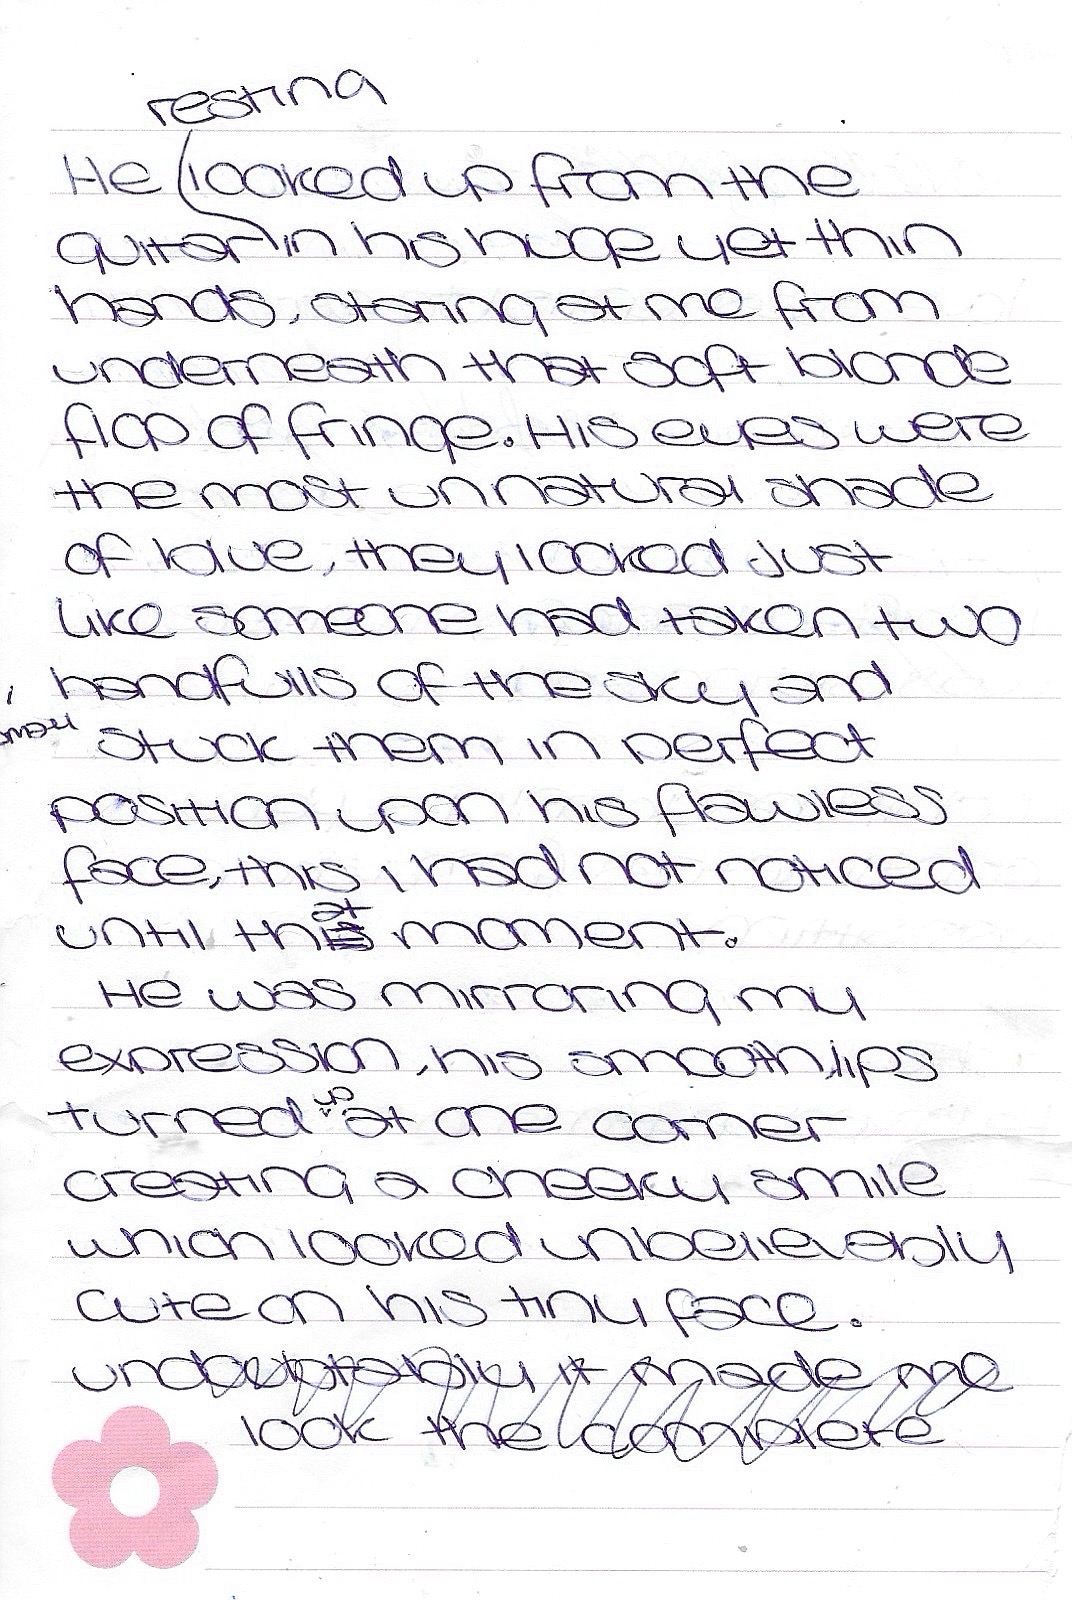 resting
He looked up from the
guitar in his huge yet thin
hands, staring at me from
underneath that soft blonde
flop of fringe. His eyes were
the most unnatural shade
of blue, they looked just
like someone had taken two
handfulls of the sky and
small
stuck them in perfect
position upon his flawless
face, this i had not noticed
at
until this moment.
He was mirroring my
expression, his smooth lips
up
turned at one corner
creating a cheeky smile
which looked unbelievably
cute on his tiny face.
undoubtably it made me
look the complete